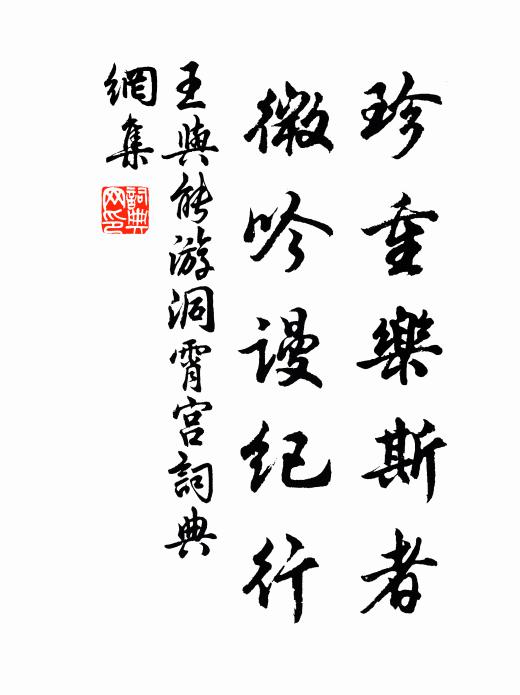 珍重樂斯者
微吟謾纪行
王與能游洞霄宫詞典
網集
詞典
网印